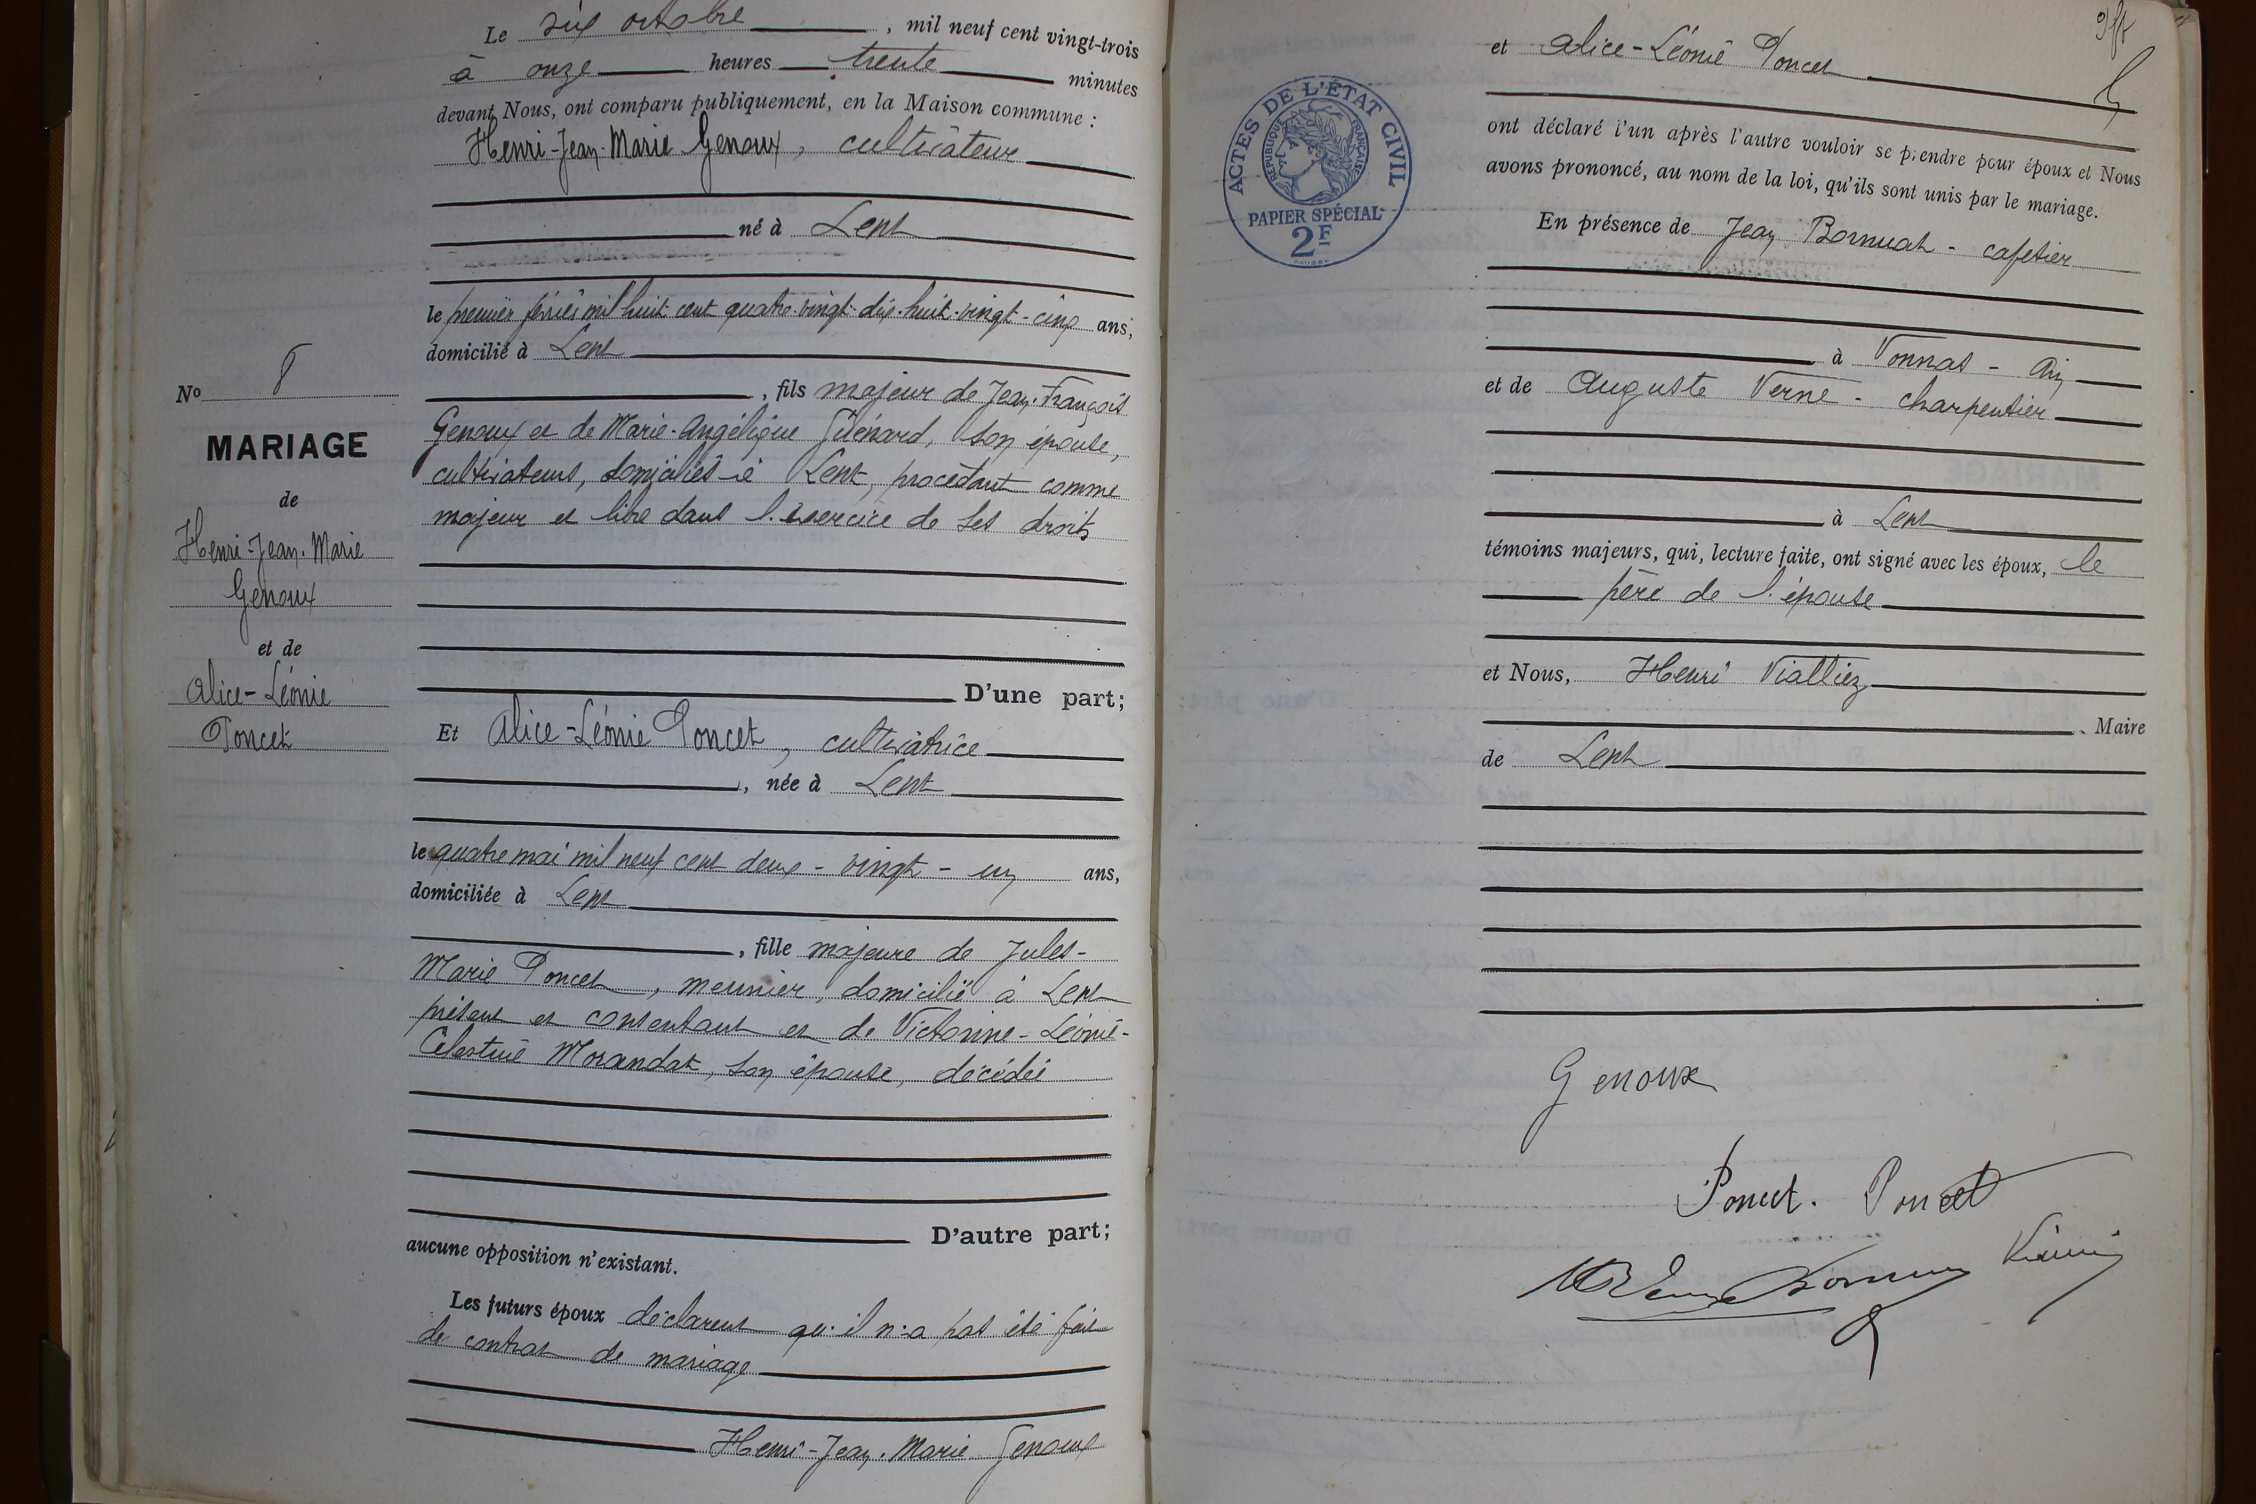 Le six octobre, mil neuf cent vingt-trois
à onze heures trente minutes
devant Nous, ont comparu publiquement, en la Maison commune :
Henri-Jean-Marie Genoux, cultivateur
né à Lent
le premier février mil huit cent quatre-vingt-dix-huit-vingt-cinq ans,
domicilié à Lent
, fils majeur de Jean-François
Genoux et de Marie-Angélique Guénard, son épouse,
cultivateurs, domiciliés à Lent, procédant comme
majeur et libre dans l'exercice de ses droits
D'une part;
Et Alice-Léonie Poncet, cultivatrice
, née à Lent
le quatre mai mil neuf cent deux - vingt - un ans,
domiciliée à Lent
, fille majeure de Jules-
Marie Poncet, meunier, domicilié à Lent
présent et consentant et de Victorine-Léonie-
Célestine Morandat, son épouse, décédée
D'autre part;
aucune opposition n'existant.
Les futurs époux déclarent qu'il n'a pas été fait
de contrat de mariage
Henri-Jean-Marie Genoux
No 8
MARIAGE
de
Henri-Jean-Marie
Genoux
et de
Alice-Léonie
Poncet
et Alice-Léonie Poncet
ont déclaré l'un après l'autre vouloir se prendre pour époux et Nous
avons prononcé, au nom de la loi, qu'ils sont unis par le mariage.
En présence de Jean Bornuat - cafetier
à Vonnas - Ain
et de Auguste Verne - charpentier
à Lent
témoins majeurs, qui, lecture faite, ont signé avec les époux, le
père de l'épouse
et Nous, Henri Vialliez
, Maire
de Lent
ACTES DE L'ÉTAT CIVIL
RÉPUBLIQUE FRANÇAISE
PAPIER SPÉCIAL
2F
Genoux
Poncet. Poncet